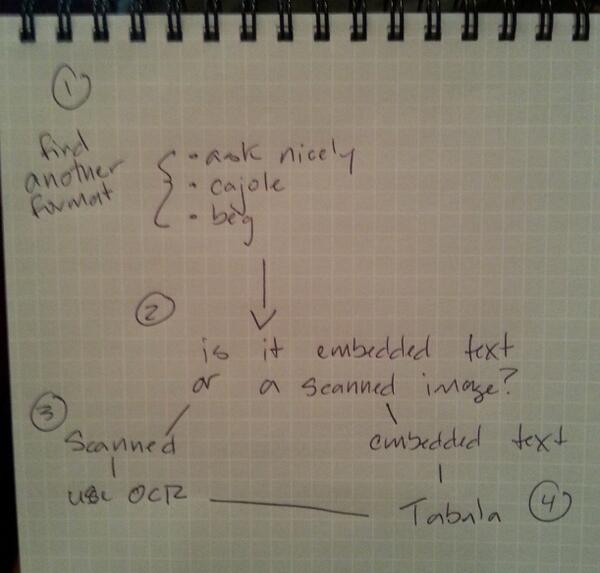 1
find
another
format
• ask nicely
• cajole
• beg
2
is it embedded text
or a scanned image?
3
Scanned
use OCR
embedded text
Tabula
4